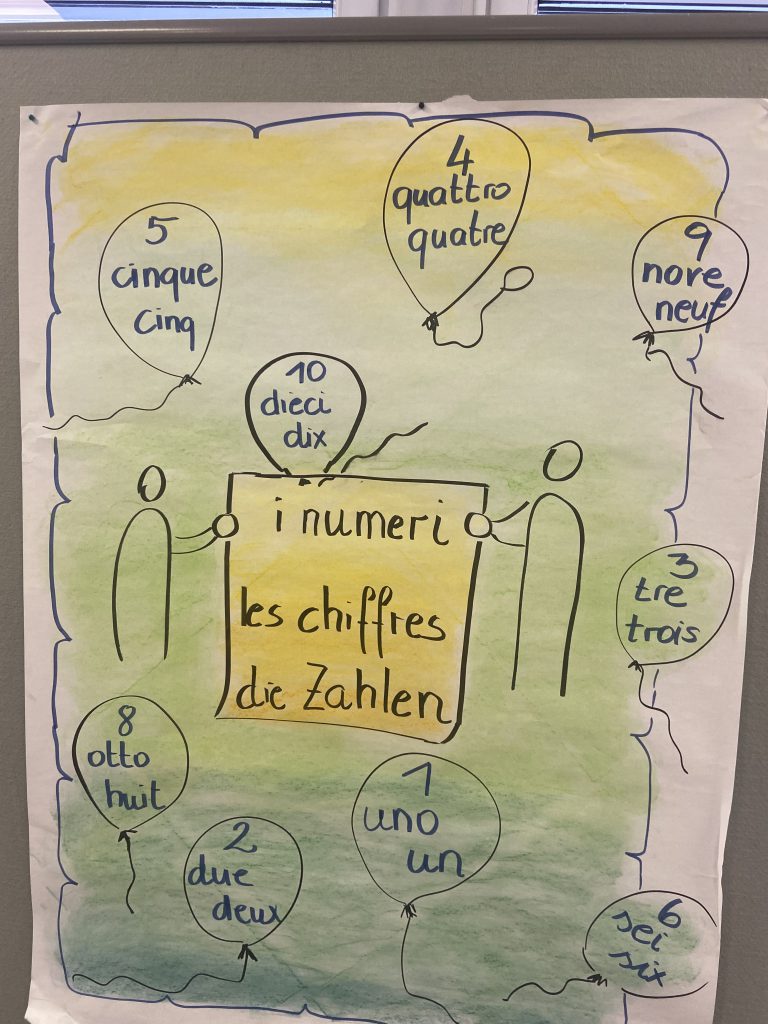 4
quattro
quatre
5
cinque
cinq
9
nove
neuf
10
dieci
dix
i numeri
les chiffres
die Zahlen
3
tre
trois
8
otto
huit
1
uno
un
2
due
deux
6
sei
six